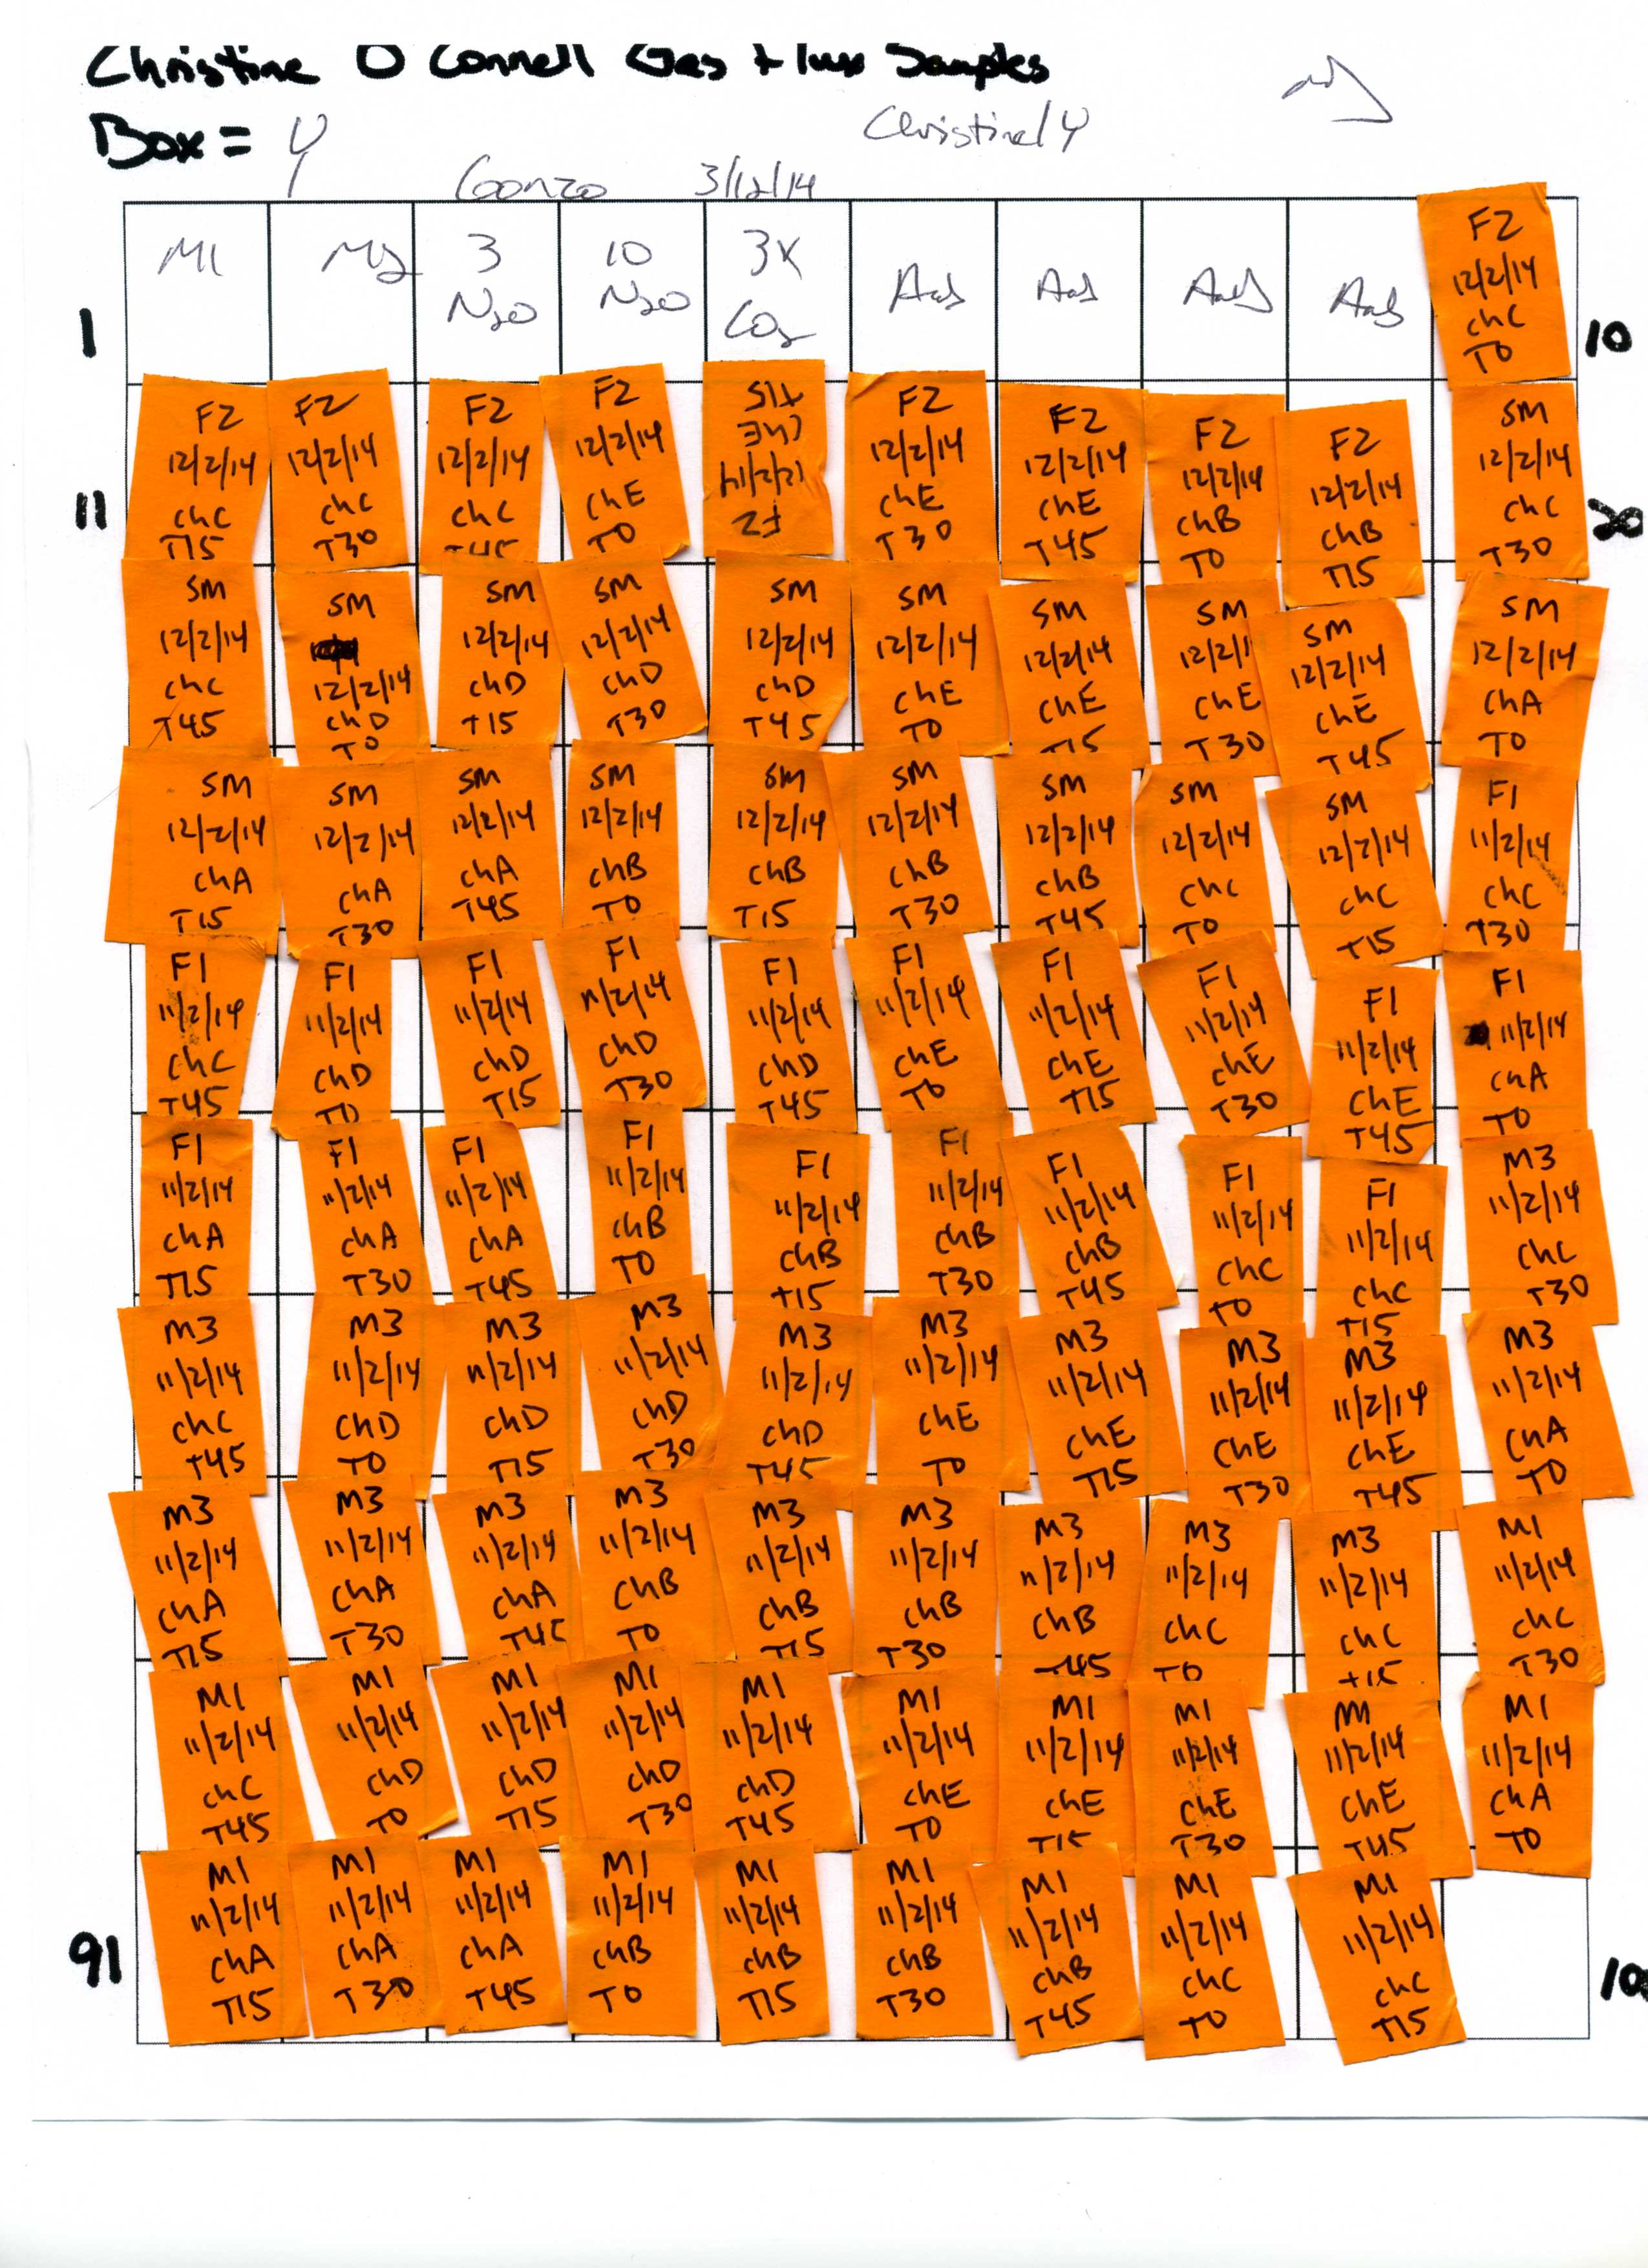 Christine O Connell Gas Flux Samples
Box = 4
Christine/4
Gonzo 3/12/14
1
M1
M2
3
N2O
10
N2O
3X
CO2
F2
12/2/14
chC
T0
10
11
F2
12/2/14
chC
T15
F2
12/2/14
chC
T30
F2
12/2/14
chC
T45
F2
12/2/14
chE
T0
F2
12/2/14
chE
T15
F2
12/2/14
chE
T30
F2
12/2/14
chE
T45
F2
12/2/14
chB
T0
F2
12/2/14
chB
T15
SM
12/2/14
chC
T30
20
SM
12/2/14
chC
T45
SM
12/2/14
chD
T0
SM
12/2/14
chD
T15
SM
12/2/14
chD
T30
SM
12/2/14
chD
T45
SM
12/2/14
chE
T0
SM
12/2/14
chE
T15
SM
12/2/1
chE
T30
SM
12/2/14
chE
T45
SM
12/2/14
chA
T0
SM
12/2/14
chA
T15
SM
12/2/14
chA
T30
SM
12/2/14
chA
T45
SM
12/2/14
chB
T0
SM
12/2/14
chB
T15
SM
12/2/14
chB
T30
SM
12/2/14
chB
T45
SM
12/2/14
chC
T0
SM
12/2/14
chC
T15
F1
11/2/14
chC
T30
F1
11/2/14
chC
T45
F1
11/2/14
chD
T0
F1
11/2/14
chD
T15
F1
11/2/14
chD
T30
F1
11/2/14
chD
T45
F1
11/2/14
chE
T0
F1
11/2/14
chE
T15
F1
11/2/14
chE
T30
F1
11/2/14
chE
T45
F1
11/2/14
chA
T0
F1
11/2/14
chA
T15
F1
11/2/14
chA
T30
F1
11/2/14
chA
T45
F1
11/2/14
chB
T0
F1
11/2/14
chB
T15
F1
11/2/14
chB
T30
F1
11/2/14
chB
T45
F1
11/2/14
chC
T0
F1
11/2/14
chC
T15
M3
11/2/14
chC
T30
M3
11/2/14
chC
T45
M3
11/2/14
chD
T0
M3
11/2/14
chD
T15
M3
11/2/14
chD
T30
M3
11/2/14
chD
T45
M3
11/2/14
chE
T0
M3
11/2/14
chE
T15
M3
11/2/14
chE
T30
M3
11/2/14
chE
T45
M3
11/2/14
chA
T0
M3
11/2/14
chA
T15
M3
11/2/14
chA
T30
M3
11/2/14
chA
T45
M3
11/2/14
chB
T0
M3
11/2/14
chB
T15
M3
11/2/14
chB
T30
M3
11/2/14
chB
T45
M3
11/2/14
chC
T0
M3
11/2/14
chC
T15
M1
11/2/14
chC
T30
M1
11/2/14
chC
T45
M1
11/2/14
chD
T0
M1
11/2/14
chD
T15
M1
11/2/14
chD
T30
M1
11/2/14
chD
T45
M1
11/2/14
chE
T0
M1
11/2/14
chE
T15
M1
11/2/14
chE
T30
M1
11/2/14
chE
T45
M1
11/2/14
chA
T0
91
M1
11/2/14
chA
T15
M1
11/2/14
chA
T30
M1
11/2/14
chA
T45
M1
11/2/14
chB
T0
M1
11/2/14
chB
T15
M1
11/2/14
chB
T30
M1
11/2/14
chB
T45
M1
11/2/14
chC
T0
M1
11/2/14
chC
T15
10